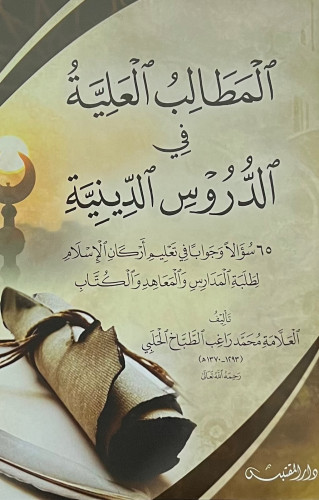 الْمَطَالِبُ الْعَلِيَّةُ
فِي
الدُّرُوْسِ الدِّينِيَّةِ
٦٥ سُؤَالاً وَجَوَابًا فِي تَعْلِيمِ أَرْكَانِ الْإِسْلَامِ
لِطَلَبَةِ الْمَدَارِسِ وَالْمَعَاهِدِ وَالْكُتَّابِ
تَأْلِيفُ
الْعَلَّامَةِ مُحَمَّد رَاغِب الطَّبَّاخ الْحَلَبِي
(١٢٩٣-١٣٧٠هـ)
رَحِمَهُ اللهُ تَعَالَى
دار المقتبس